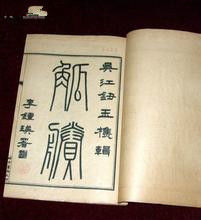 吳江鈕玉樵輯
觚賸
李鍾瑛署